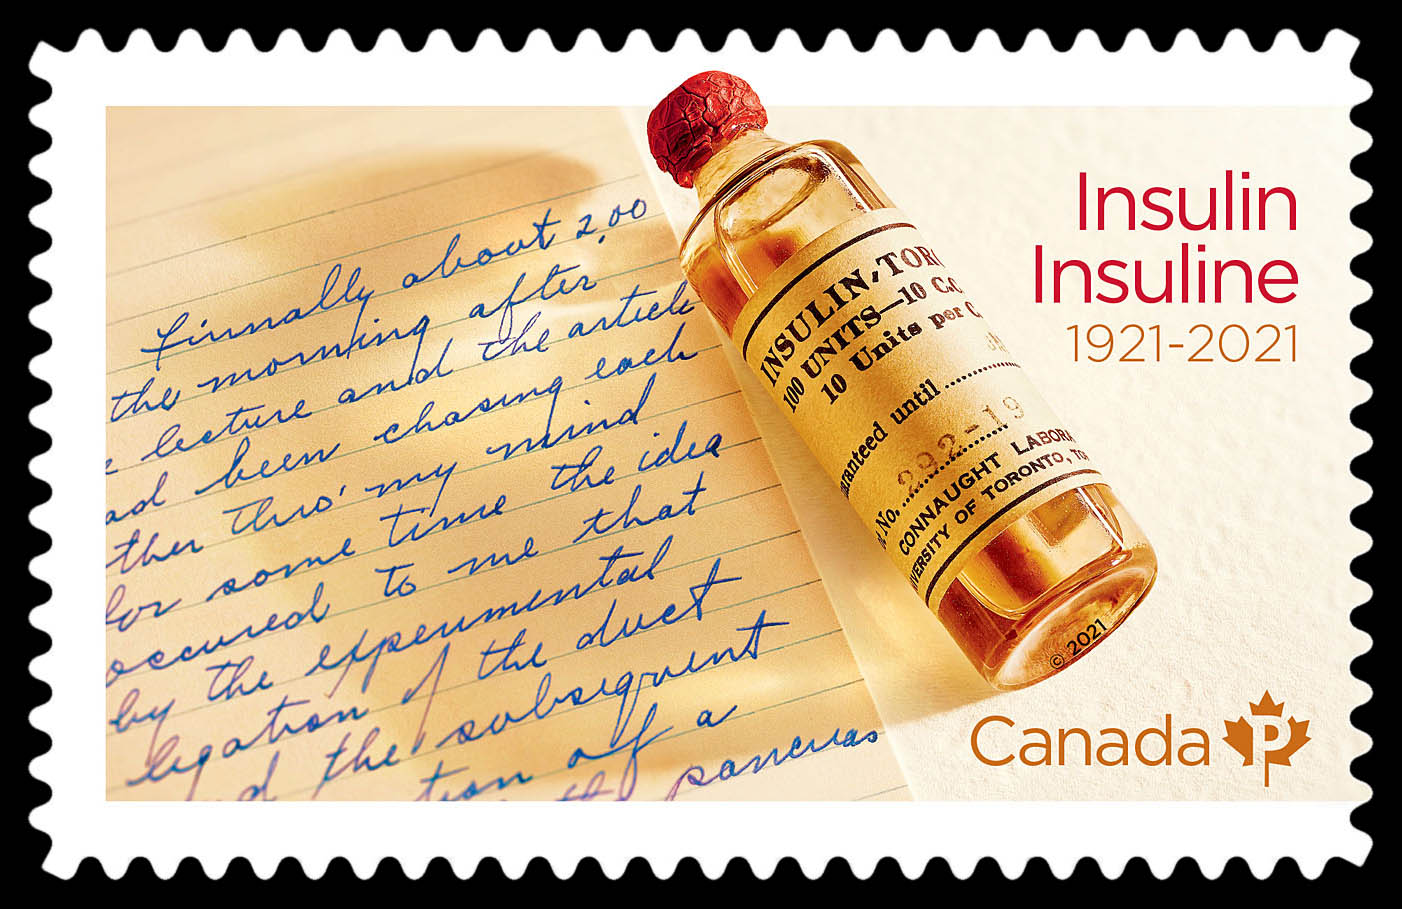 Finnally about 2,00
the morning after
lecture and the article
ad been chasing each
ther thro' my mind
for some time the idea
occured to me that
by the experimental
ligation of the duct
d the subsequent
tion of a
pancreas
INSULIN-TOR
100 UNITS—10 C.C
10 Units per C.
aranteed until
No. 292-19
CONNAUGHT LABORA
VERSITY OF TORONTO, TO
© 2021
Insulin
Insuline
1921-2021
Canada P